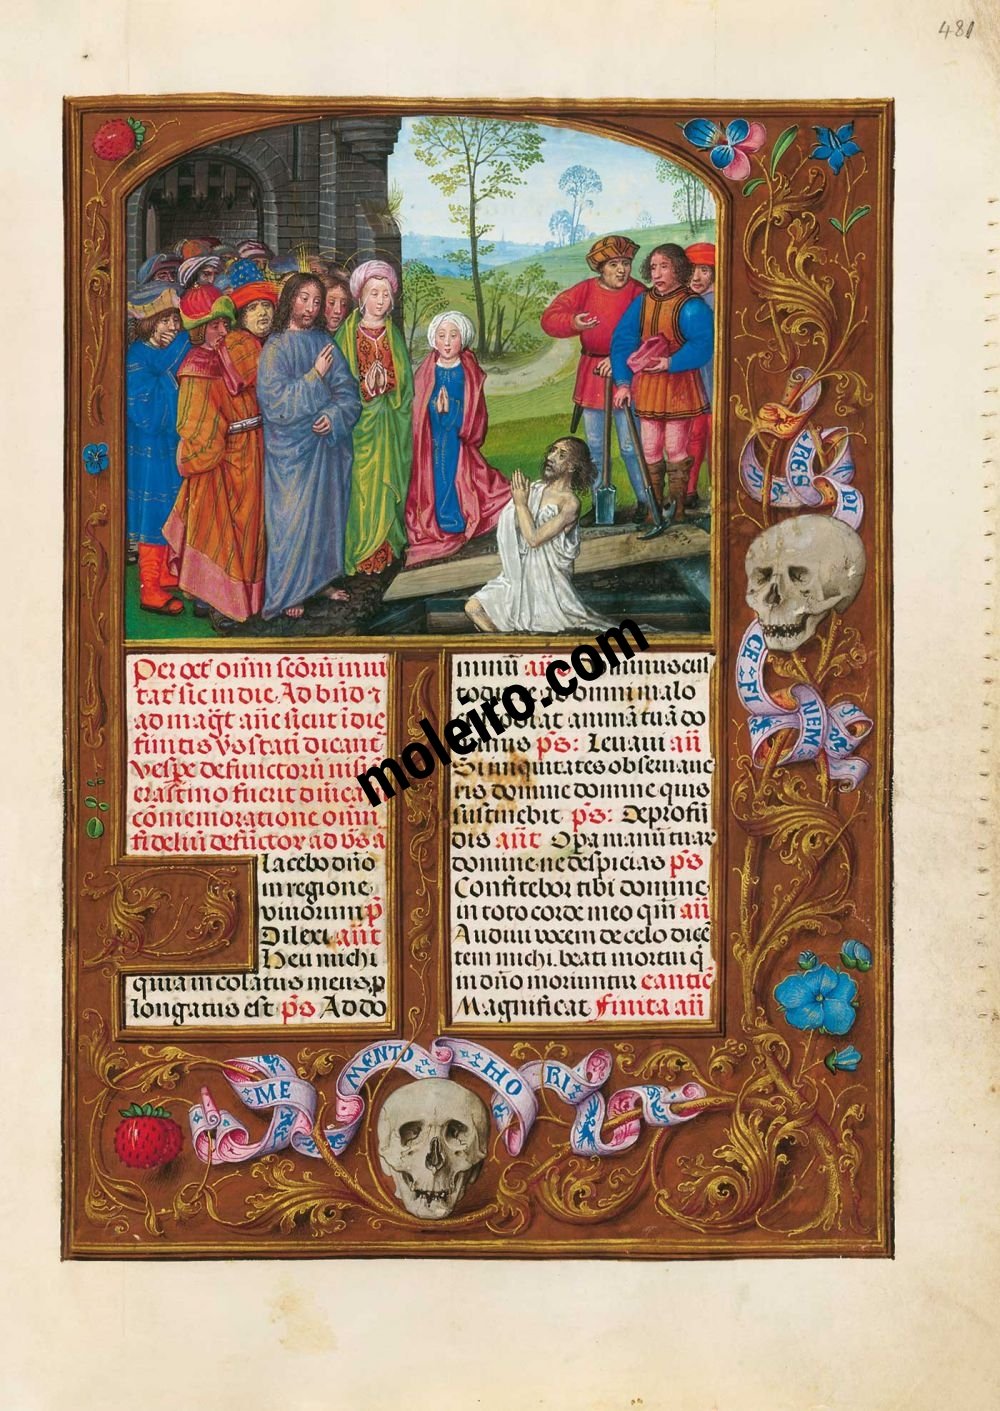 481
Per oct' om̄m sc̄orū inui
tat' sic in die. Ad bn̄d ⁊
ad mag̃t añe sicut ī die
finitis v̄s stati dicant'
vespe defunctorū nisi
crastino fuerit dn̄ica
cōmemoratione om̄iū
fideliū defūctor ad v̄s a
lacebo dn̄o
in regione
viuorum p̄
Dilexi añt
Heu michi
quia incolatus meus p
longatus est ps̄ Ad do
minū añ Dominus cus
todit te ab omni malo
custodiat animā tuā do
minus ps̄: Leuaui añ
Si iniquitates obseruaue
ris domine domine quis
sustinebit ps̄: De profū
dis añt Opa manuū tuar
domine ne despicias ps̄
Confitebor tibi domine
in toto corde meo qm̄ añ
Audiui vocem de celo dicē
tem michi. beati mortui q̄
in dn̄o moriuntur cantic̄
Magnificat finita añ
RES
DI
CE FI
NEM
ME MENTO MO RI
moleiro.com